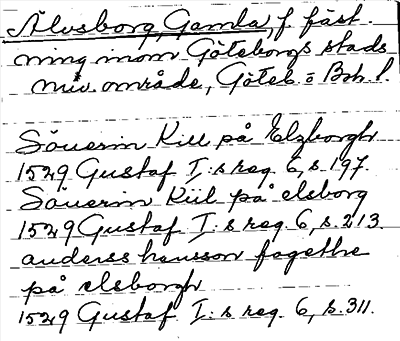 Älvsborg, Gamla, f. fäst-
ning inom Göteborgs stads
nuv. område, Göteb. o Boh. l.
Söuerin Kiil på Elzborgh
1529 Gustaf I:s reg. 6, s. 197.
Söuerin Kiil på elsborg
1529 Gustaf I:s reg. 6, s. 213.
anderss hansson fogethe
på elsborgh
1529 Gustaf I:s reg. 6, s. 311.